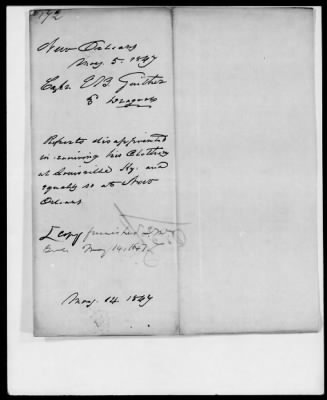 New Orleans
May 5. 1847
Capt. E. B. Gaither
3 Dragoons
Reports disappointed
in receiving his Clothing
at Louisville Ky. and
equally so at New
Orleans
copy furnished
May 14. 1847
May 14 1847